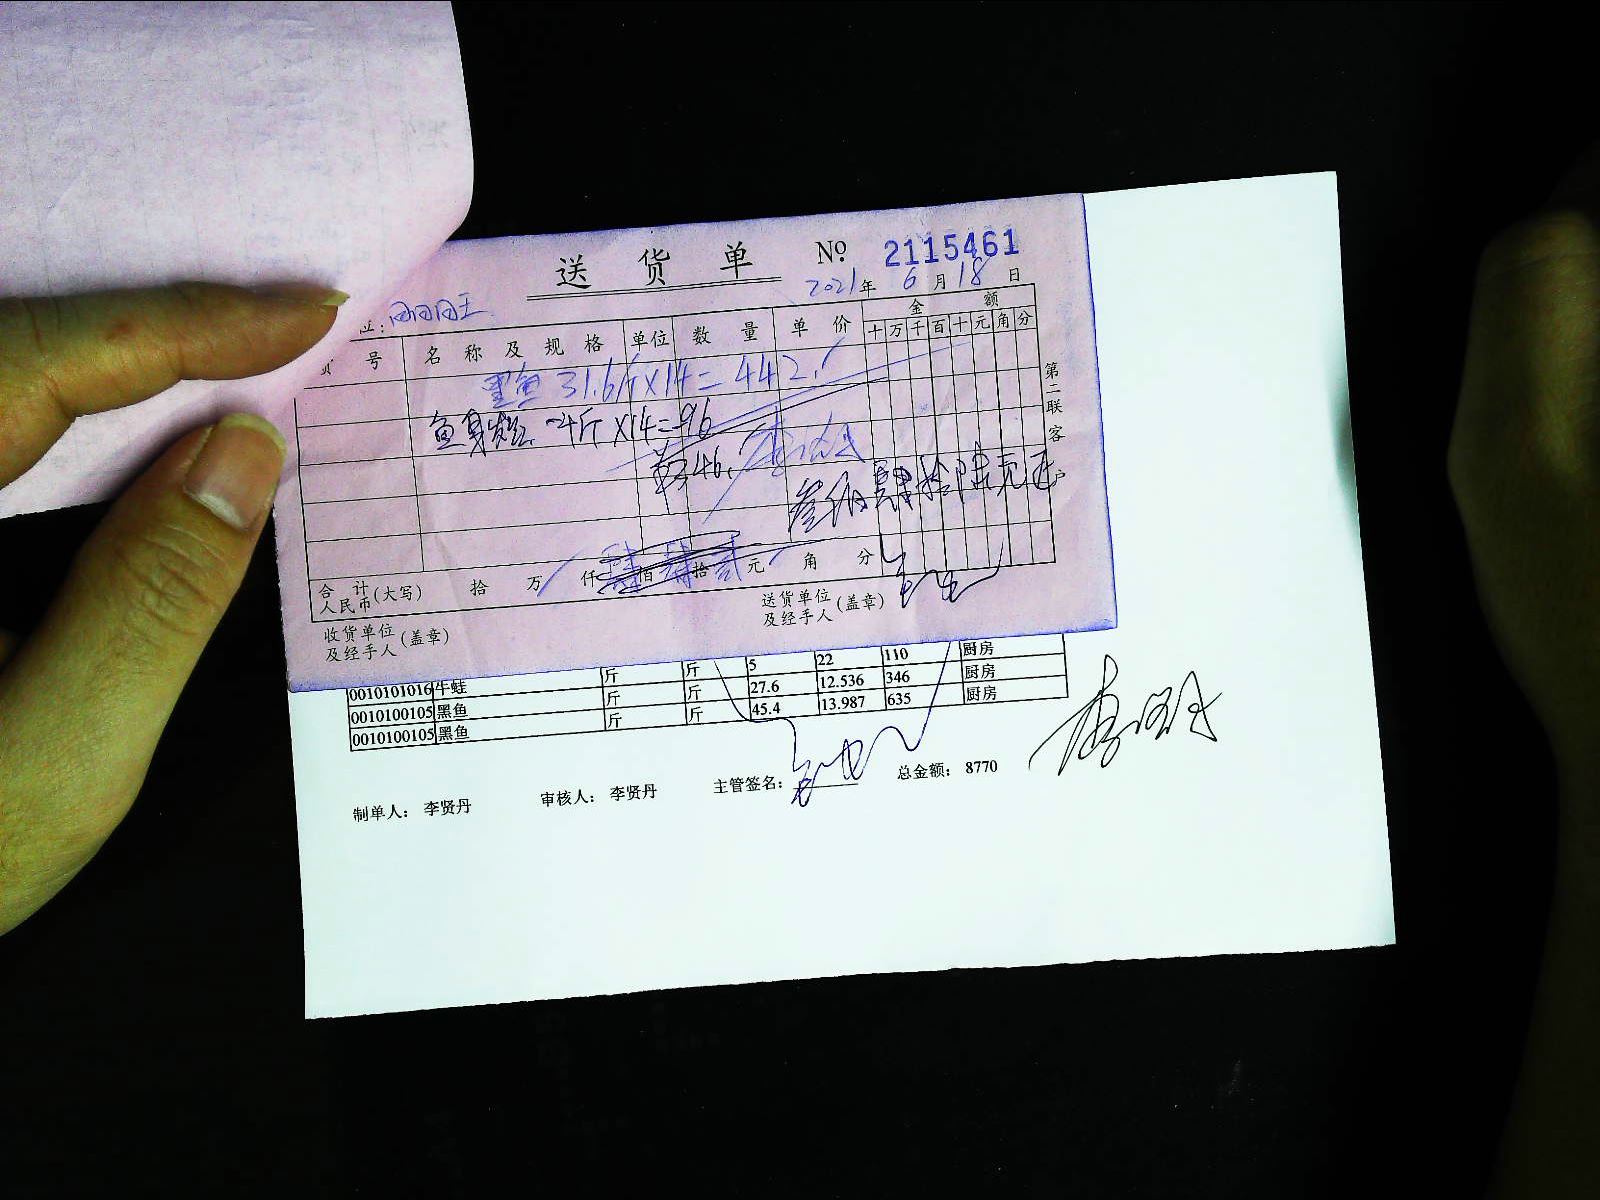 送 货 单 Nº 2115461
2021年 6 月 18 日
金 额
号 名 称 及 规 格 单位 数 量 单 价 十 万 千 百 十 元 角 分
黑鱼 31.6斤×14=442.
鱼 斤×14=96
346.
叁佰肆拾陆元正
第二联 客户
合 计 人民币(大写) 拾 万 仟 肆 百 肆 拾 贰 元 角 分
收货单位及经手人(盖章) 送货单位及经手人(盖章)
斤 斤 5 22 110 厨房
0010101016 牛蛙 斤 斤 27.6 12.536 346 厨房
0010100105 黑鱼 斤 斤 45.4 13.987 635 厨房
0010100105 黑鱼
制单人： 李贤丹 审核人： 李贤丹 主管签名： 总金额： 8770